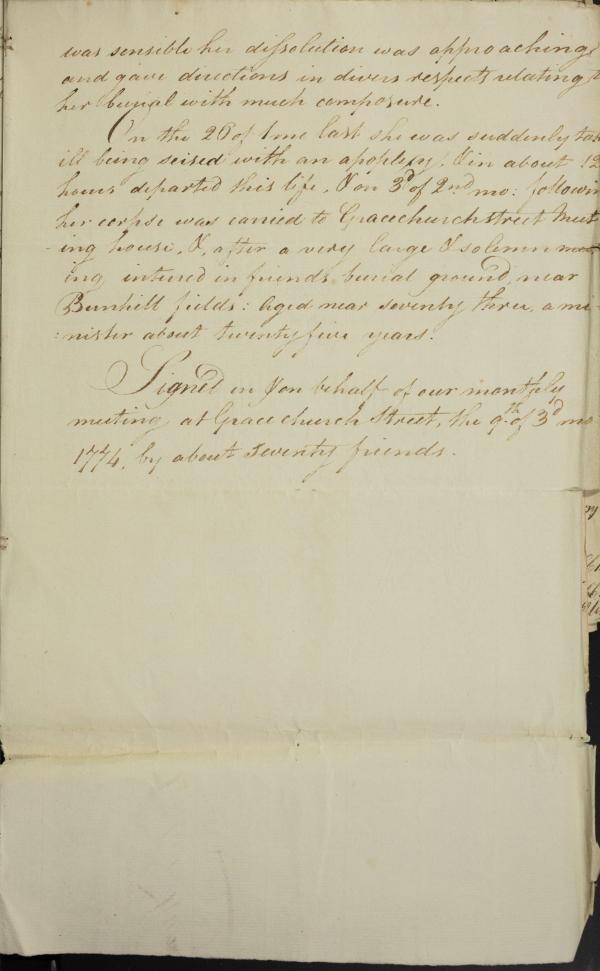 was sensible her dissolution was approaching
and gave directions in divers respects relating to
her burial with much composure.
On the 26 of 1mo last she was suddenly tak
ill being seised with an apoplexy, & in about 12
hours departed this life, & on 3d of 2nd mo: followin
her corpse was carried to Gracechurch street Meet
-ing house, &, after a very large & solemn meet
ing interred in friends burial ground, near
Bunhill fields: Aged near seventy three, a mi-
:nister about twenty five years.
Signed in & on behalf of our monthly
meeting at Grace church Street, the 9th of 3d mo
1774, by about Seventy friends.